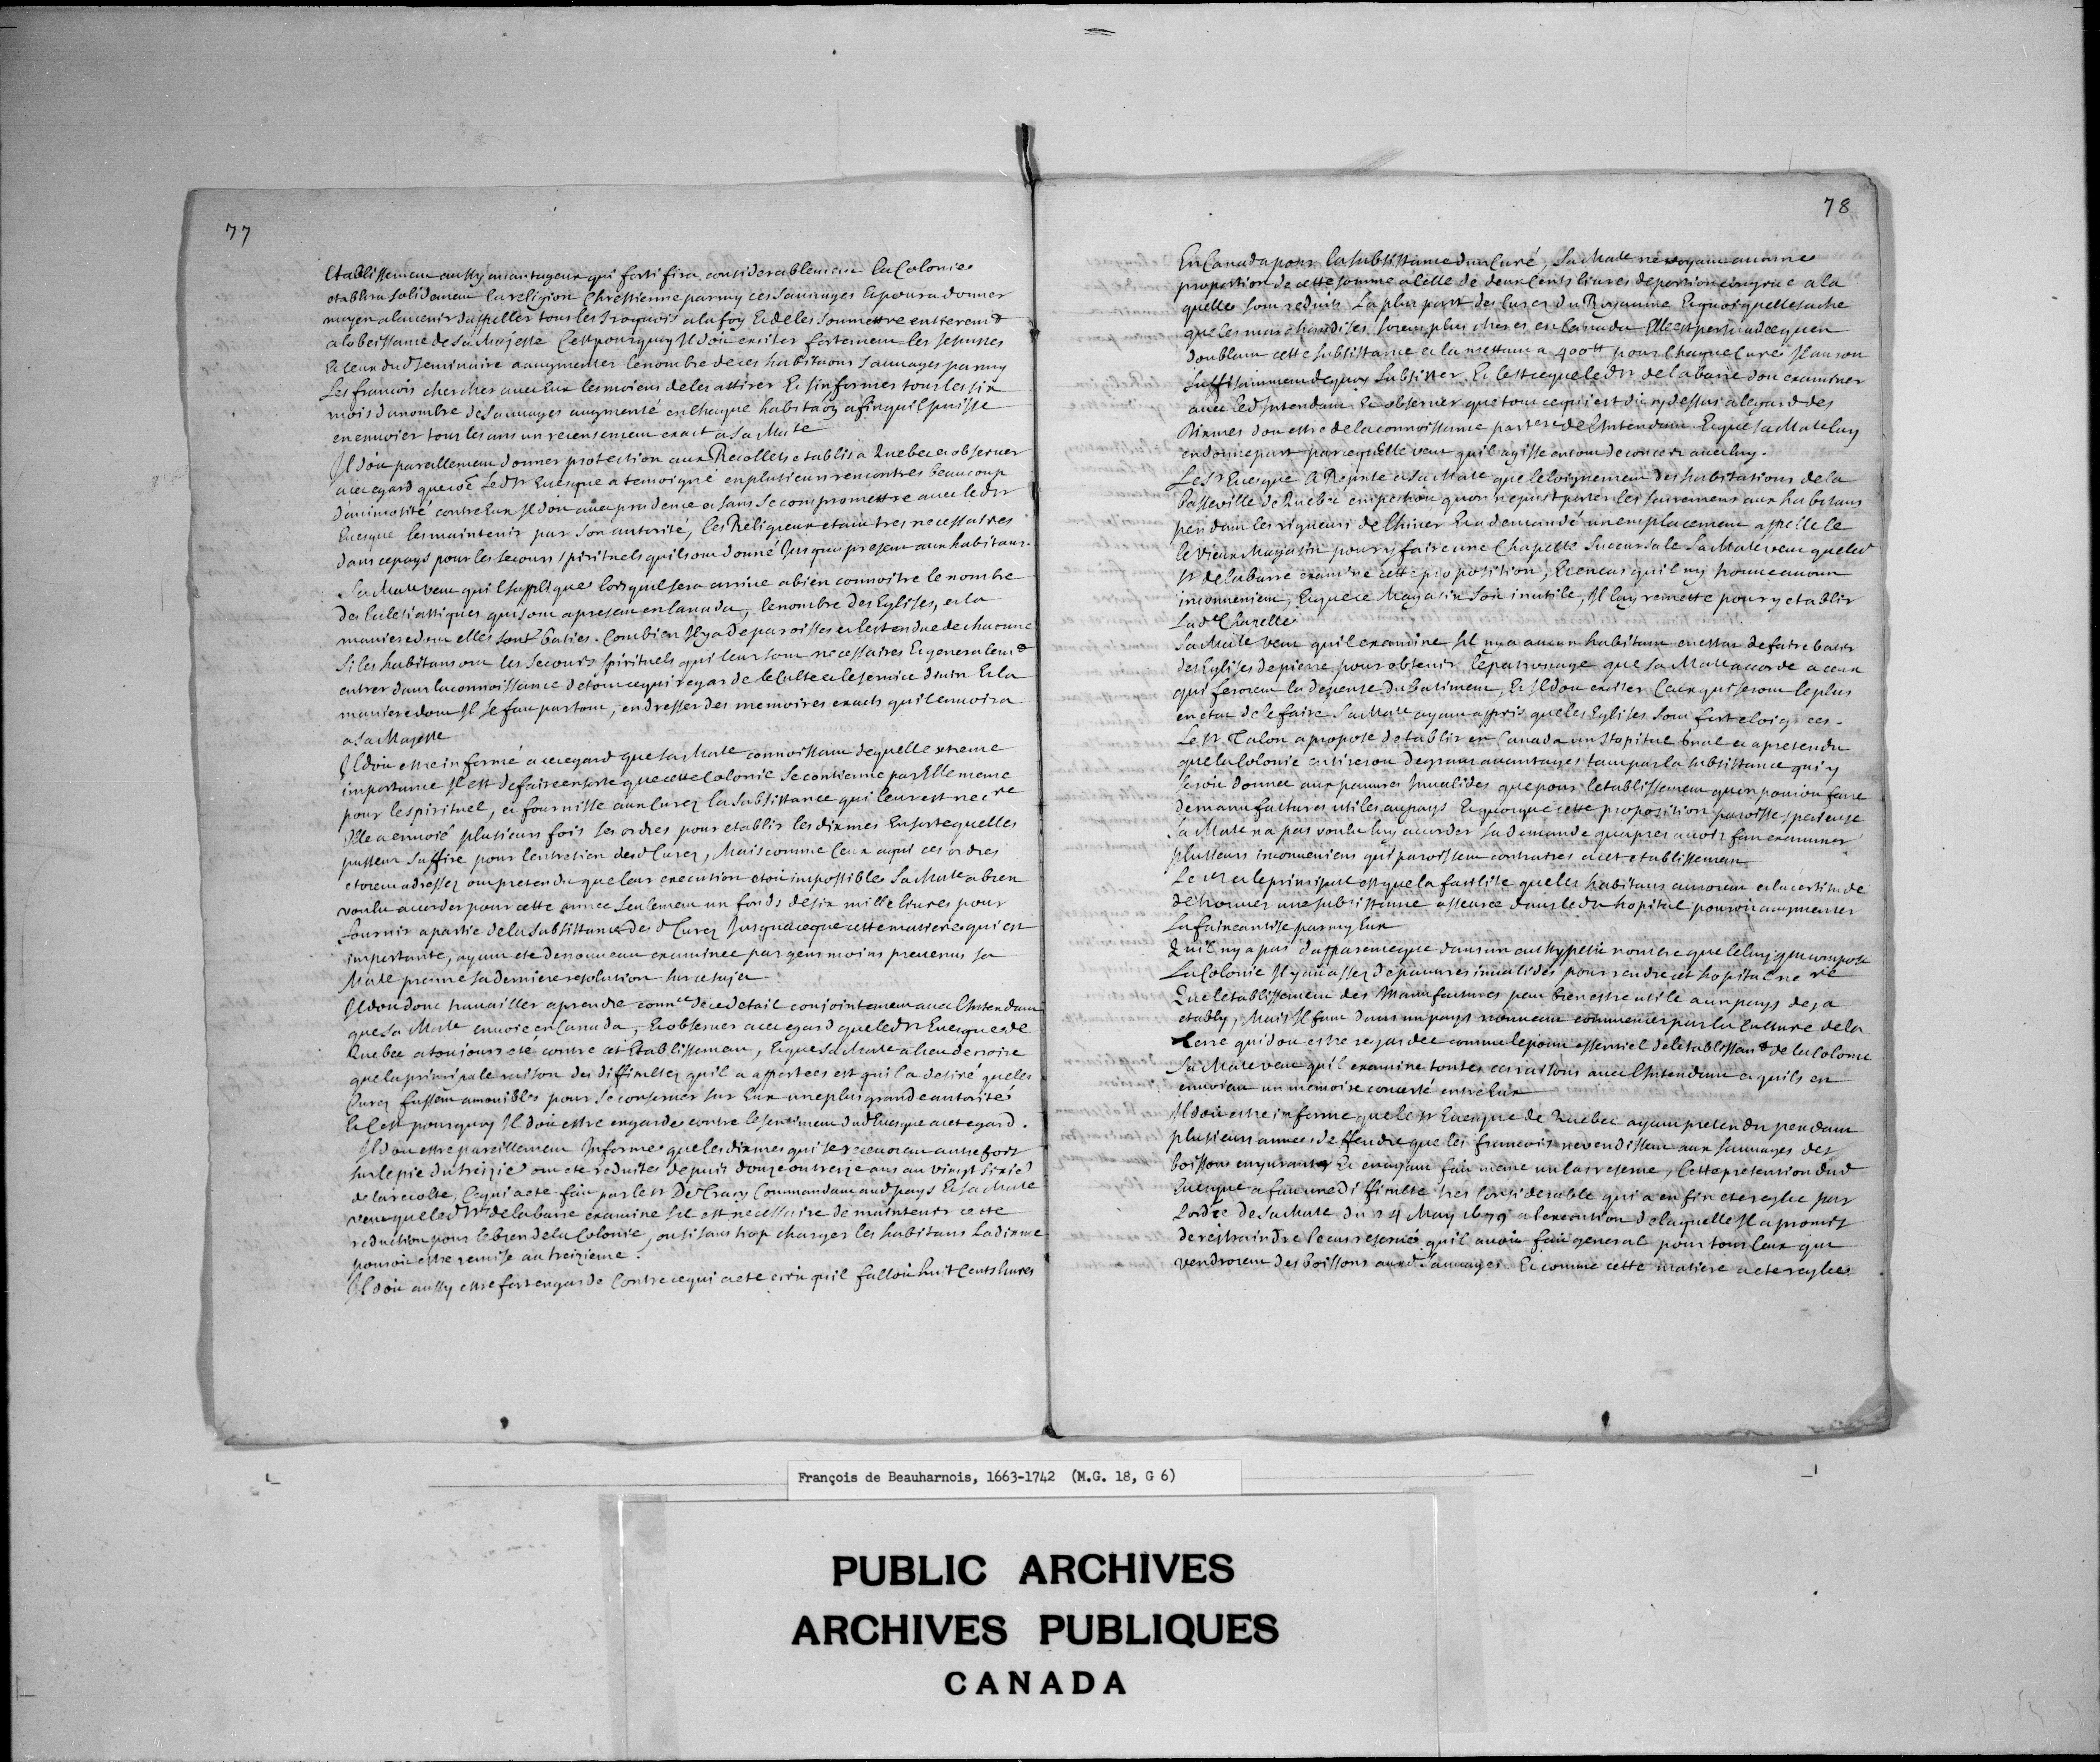 77
Etablissement aussy avantageux qui fortifira considerablement la Colonie
etablira solidement la religion Chrestienne parmy ces sauvages Et poura donner
moyen alavenir dappeller tous les Iroquois a la foy Et de les soumettre entierem&
a lobeissance de sa Majesté Cest pourquoy Il doit exciter fortement les Jesuistes
Et Ceux dud Seminaire a augmenter le nombre de ces habitations sauvages parmy
Les francois chercher avec Eux les moiens de les attirer Et sinformer tous les six
mois du nombre de sauvages augmenté en Chaque habitaon afin quil puisse
en envoier tous les ans un recensement exact a Sa Mate
Il doit pareillement donner protection aux Recollets etablis a Quebec et observer
a cet egard que led Sr Evesque a temoigné en plusieurs rencontres beaucoup
danimosité contre Eux Il doit avec prudence et sans se compromettre avec led Sr
Evesque les maintenir par son autorité, les Religieux etant tres necessaires
dans ce pays pour les secours spirituels quils ont donné Jusqua present aux habitans.
Sa Mate veut quil sapplique lors quil sera arrive a bien connoitre le nombre
des Eclesiastiques qui sont apresent en Canada, le nombre des Eglises, et la
maniere dont elles sont baties. Combien Il y a de paroisses et lestendue de chacune
Si les habitans ont les Secours spirituels qui leur sont necessaires Et generalem&
entrer dans la connoissance de tout ce qui regarde le Culte et le service divin Et la
maniere dont Il se fait partout, en dresser des memoires exacts quil envoira
a Sa Majesté
Il doit estre informé a cet egard que Sa Mate connoissant de quelle extreme
importance Il est de faire ensorte que cette Colonie se contienne par Elle meme
pour le spirituel, et fournisse aux Curez la subsistance qui leur est necre
Elle a envoié plusieurs fois ses ordres pour etablir les dixmes Ensorte quelles
pussent suffire pour lentretien desd Curez, Mais comme Ceux a qui ces ordres
etoient adressez ont pretendu que leur execution etoit impossible Sa Mate a bien
voulu accorder pour cette année seulement un fonds de six mille livres pour
fournir a partie de la subsistance desd Curez Jusqua ce que cette matiere qui est
importante, ayant eté de nouveau examinée par gens moins prevenus Sa
Mate prenne sa derniere resolution sur ce sujet
Il doit donc travailler a prendre connce de ce detail conjointement avec lIntendant
que Sa Mate envoie en Canada, Et observer a cet egard que led Sr Evesque de
Quebec a toujours eté contre cet Etablissement, Et que Sa Mate a lieu de croire
que la principale raison des difficultez quil a apportées est quil a desiré que les
Curez fussent amovibles pour se conserver sur Eux une plus grande autorité
Et Cest pourquoy Il doit estre en garde contre le sentiment dud Evesque a cet egard.
Il doit estre pareillement Informé que les dixmes qui se recevoient autrefois
sur le pié du treizie ont eté reduites depuis douze ou treize ans au vingt sixie
de la recolte, Ce qui a eté fait par le Sr De Tracy Commandant aud pays Et Sa Mate
veut que led Sr de la barre examine sil est necessaire de maintenir cette
reduction pour le bien de la Colonie, ou si sans trop charger les habitans La dixme
pouroit estre remise au treizieme.
Il doit aussy estre fort en garde Contre ce qui a eté ecrit quil falloit huit Cents livres
78
En Canada pour la subsistance dun Curé, Sa Mate ne voyant aucune
proportion de cette somme a celle de deux cents livres de portion congrue a la
quelle sont reduits La plus part des Curez du Royaume Et quoy quelle sache
que les marchandises soient plus cheres en Canada Elle est persuadée quen
doublant cette subsistance et la mettant a 400tt pour Chaque Curé Il auront
suffisamment de quoy subsister. Et Cest ce que led Sr de la barre doit examiner
avec led Intendant Et observer que tout ce qui est dit cy dessus a legard des
Dixmes doit estre de la connoissance partere de lIntendant Et que Sa Mate luy
en donne part parcequElle veut quil agisse en tout de concert avec luy.
Le Sr Evesque A Represté a Sa Mate que leloignement des habitations de la
basse ville de Quebec empechoit quon ne pust porter les sacremens aux habitans
pendant les rigueurs de lhiver Et a demandé un emplacement appellé le
le Vieux Magasin pour y faire une Chapelle Succursale Sa Mate veut que led
Sr de la barre examine cette proposition, Et en cas quil ny trouve aucun
inconvenient, Et que ce Magasin soit inutile, Il luy remette pour y etablir
Lade Chapelle
Sa Mate veut quil examine sil ny a aucun habitant en estat de faire batir
des Eglises de pierre pour obtenir le patronage que Sa Mate accorde a ceux
qui feroient la depense du batiment, Et Il doit exciter Ceux qui seront le plus
en etat de le faire Sa Mate ayant appris que les Eglises sont fort eloignées.
Le Sr Talon a proposé detablir en Canada un Hopital gnal et a pretendu
que la Colonie en tireroit de grans avantages tant par la subsistance qui y
seroit donnée aux pauvres Invalides que pour letablissement quon pouroit faire
de manufactures utiles au pays Et quoyque cette proposition paroisse specieuse
Sa Mate na pas voulu luy accorder sa demande quapres avoir fait examiner
plusieurs inconveniens qui paroissent contraires a cet etablissement
Le 1er et le principal est que la facilité que les habitans auroient et la certitude
de trouver une subsistance asseurée dans led hopital pouroit augmenter
La faineantise parmy Eux
Quil ny a pas dapparence que dans un aussy petit nombre que celuy qui compose
La Colonie Il y ait assez de pauvres invalides pour rendre cet hopital necre
Que letablissement des Manufactures peut bien estre utile a un pays deja
etably, Mais Il faut dans un pays nouveau commencer par la Culture de la
terre qui doit estre regardée comme le point essentiel de letablissem& de la Colonie
Sa Mate veut quil examine toutes ces raisons avec lIntendant et quils en
envoient un memoire concerté entre Eux
Il doit estre informé que le Sr Evesque de Quebec ayant pretendu pendant
plusieurs années deffendre que les francois ne vendissent aux sauvages des
boissons enyvrantes Et en ayant fait meme un Cas reservé, Cette pretention dud
Evesque a fait une difficulté tres considerable qui a enfin eté reglée par
Lordre de Sa Mate du 24 May 1679 a lexecution de laquelle Il a promis
de restraindre le cas reservé quil avoit fait general pour tous ceux qui
vendroient des boissons auxd sauvages. Et comme cette matiere a eté reglée
François de Beauharnois, 1663-1742 (M.G. 18, G 6)
PUBLIC ARCHIVES
ARCHIVES PUBLIQUES
CANADA